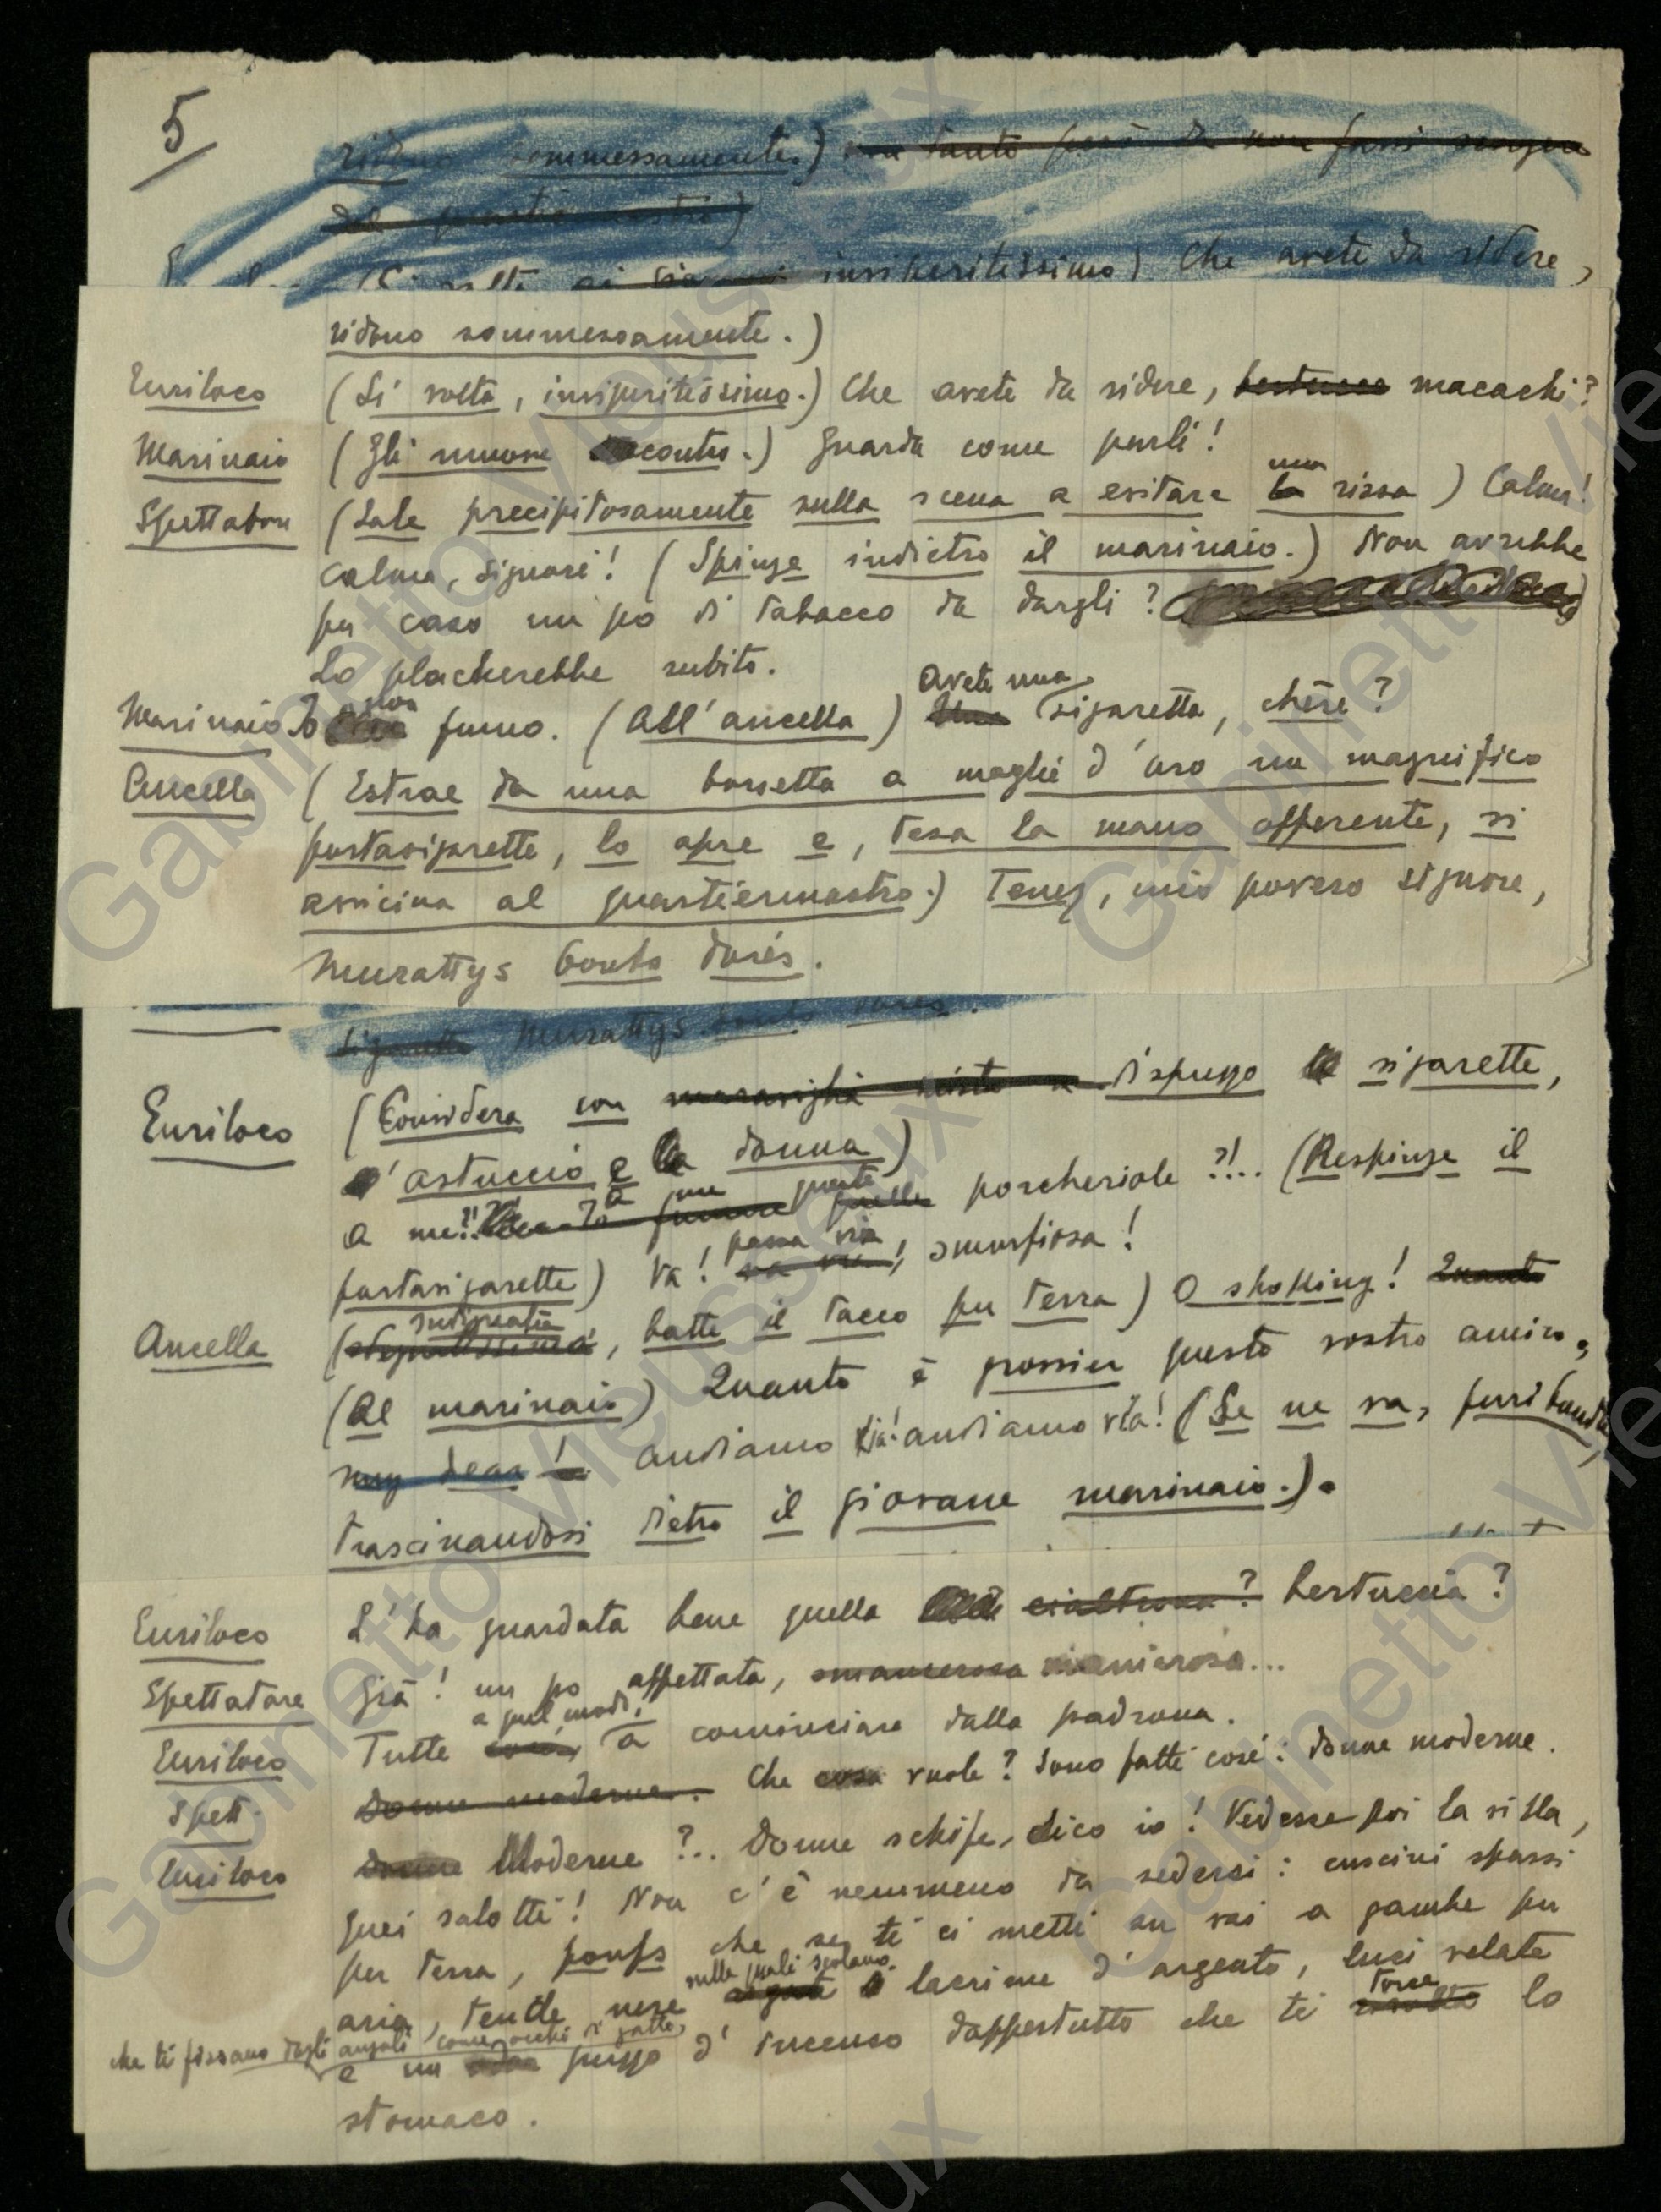 5
ridono sommessamente.) ma tanto però da non farsi scorgere
dal quartiermastro)
(Si volta ai insiperitissimo) Che avete da ridere,
ridono sommessamente.)
Euriloco (Si volta, insiperitissimo.) Che avete da ridere, bertucce macachi?
Marinaio (Gli muove contro.) Guarda come parli!
una
Spettatore (Sale precipitosamente sulla scena a evitare la rissa) Calma!
calma, signori! (Spinge indietro il marinaio.) Non avrebbe
per caso un po di tabacco da dargli?
Lo placherebbe subito.
non Avete una
Marinaio Io fumo. (All'ancella) Una sigaretta, chère?
Ancella (Estrae da una borsetta a maglie d'oro un magnifico
portasigarette, lo apre e, tesa la mano offerente, si
avvicina al quartiermastro.) Tenez, mio povero signore,
Murattys bouts dorés.
sigarette Murattys bouts dorés.
Euriloco (Considera con meraviglia mista a disprezzo le sigarette,
l'astuccio e la donna)
a me queste
a me?!! fumare quelle porcheriole?!.. (Respinge il
passa via,
portasigarette) Va! va via!, smorfiosa!
indignata
Ancella (stupitissima, batte il tacco per terra) O shoking! Quanto
(Al marinaio) Quanto è grossier questo vostro amico,
my dear! andiamo via! andiamo via! (Se ne va, furibonda,
trascinandosi dietro il giovane marinaio.).
Euriloco L'ha guardata bene quella cialtrona? bertuccia?
Spettatore Già! un po affettata, smancerosa manierosa...
a quel modo,
Euriloco Tutte così, a cominciare dalla padrona.
Spett. Donne moderne. Che cosa vuole? Sono fatte così: donne moderne.
Euriloco Donne Moderne?.. Donne schife, dico io! Vedesse poi la villa,
quei salotti! Non c'è nemmeno da sedersi: cuscini sparsi
per terra, poufs che se ti ci metti su vai a gambe per
sulle quali sgolano
aria, tende nere lacrime d'argento, luci velate
che ti fissano dagli angoli come occhi di gatto, torce
e un puzzo d'incenso dappertutto che ti rivolta lo
stomaco.